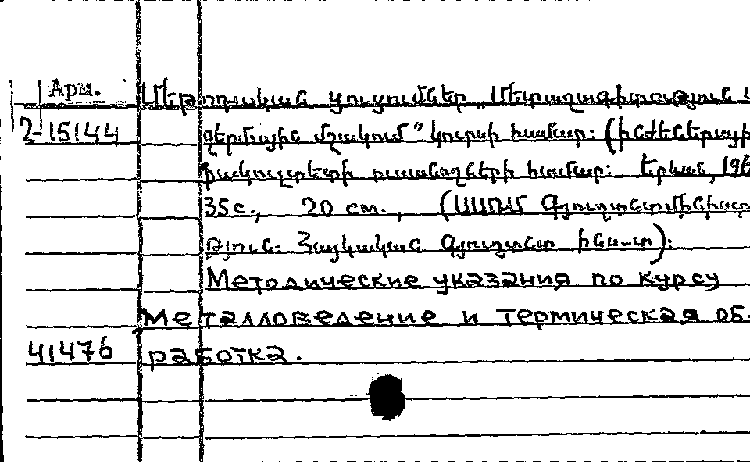 Арм. Մեթոդական ցուցումներ „Մետաղագիտություն և
2-15144 ջերմային մշակում" կուրսի համար: (ինժեներայի
ֆակուլտետի ուսանողների համար: Երևան, 196
35с., 20 см., (ՍՍՌՄ Գյուղատմինիստ
թյուն. Հայկական Գյուղատնտ ինստ-տ):
Методические указания по курсу
Металловедение и термическая об-
41476 работка.